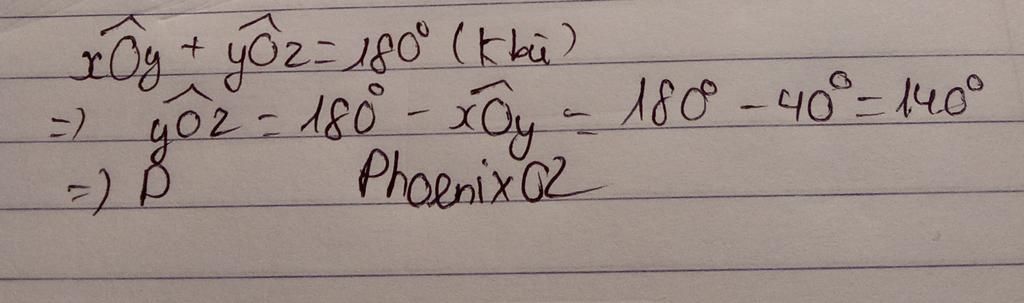 xÔy + yÔz = 180° (K bù)
=> yÔz = 180° - xÔy = 180° - 40° = 140°
=> D Phoenix02